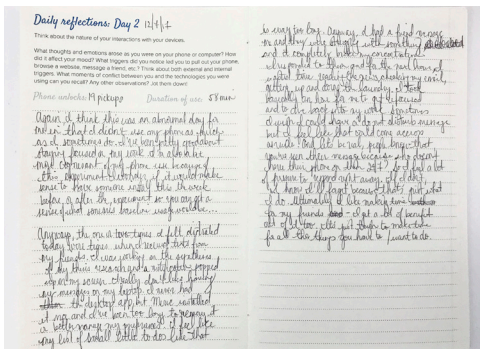 Daily reflections: Day 2 12/4/
Think about the nature of your interactions with your devices.
What thoughts and emotions arose as you were on your phone or computer? How
did it affect your mood? What triggers did you notice led you to pull out your phone,
browse a website, message a friend, etc.? Think about both external and internal
triggers. What moments of conflict between you and the technologies you were
using can you recall? Any other observations? Jot them down!
Phone unlocks: 19 pickups Duration of use: 58 min
Again I think this was an abnormal day for
me in that I didn't use my phone as much
as I sometimes do. I've been pretty good about
staying focused on my work. I'm also a bit
more cognizant of my phone use because of
this experiment & it would make
sense to have someone this the week
before or after the experiment so you can get a
sense of what someone's baseline was
Anyways, the one or two times I felt distracted
today were times when I received texts from
my friends. I was working on the synthesis
of my thesis research and a notification popped
up on my screen. I really don't like having
my messages on my laptop. I never had
the desktop app, but
it now and I've been too lazy to remove it
or better manage my preferences. I feel like
my list of small little to dos like that
is way too long. Anyway, I had a friend message
me and they were struggling with something
and it completely my concentration.
I responded to them and for the next hour I
wasted time checking my email,
getting up and doing the laundry. It took
basically an hour for me to get refocused
and to dive back into my work. Sometimes
I wish I could have a do not disturb message
but I feel like that could come across
as rude and let's be real, people know that
you've seen their message because who doesn't
have their phone on them 24/7. I feel a lot
of pressure to respond right away. If I don't
I know I'll forget because that's just what
I do. Ultimately I like making time
for my friends I get a lot of benefit
out of it too. It's just tough to make time
for all the things you have to/want to do.